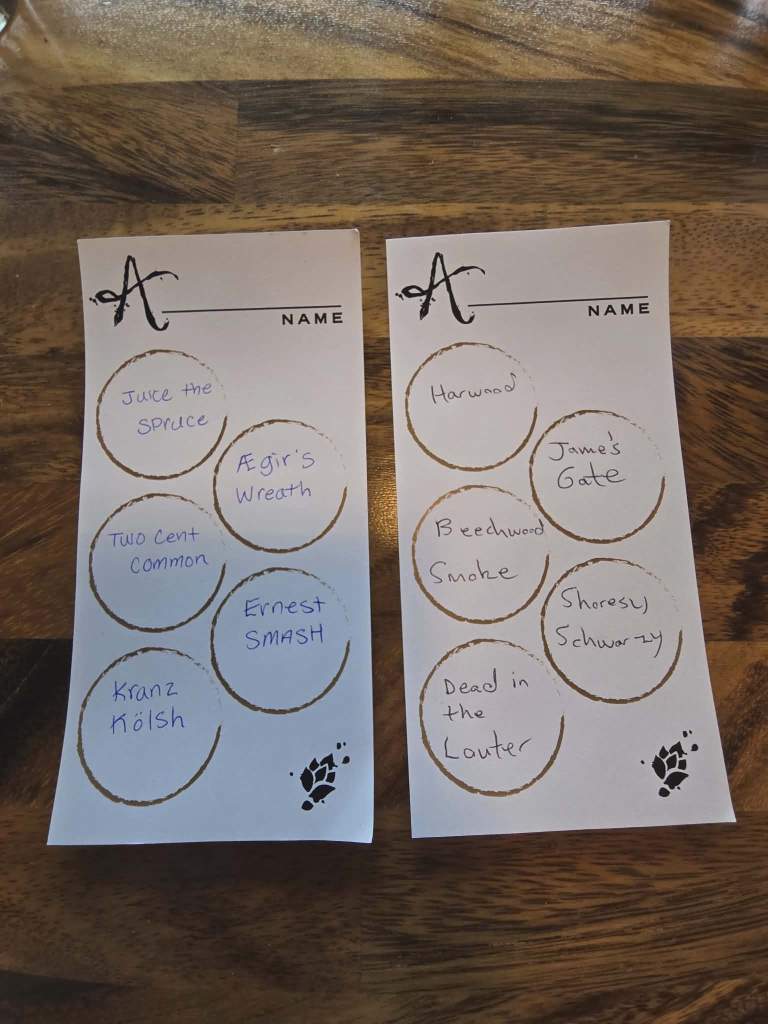 A
NAME
Juice the
Spruce
Ægir's
Wreath
Two Cent
Common
Ernest
SMASH
Kranz
Kölsh
A
NAME
Harwood
Jame's
Gate
Beechwood
Smoke
Shoresy
Schwarzy
Dead in
the
Lauter